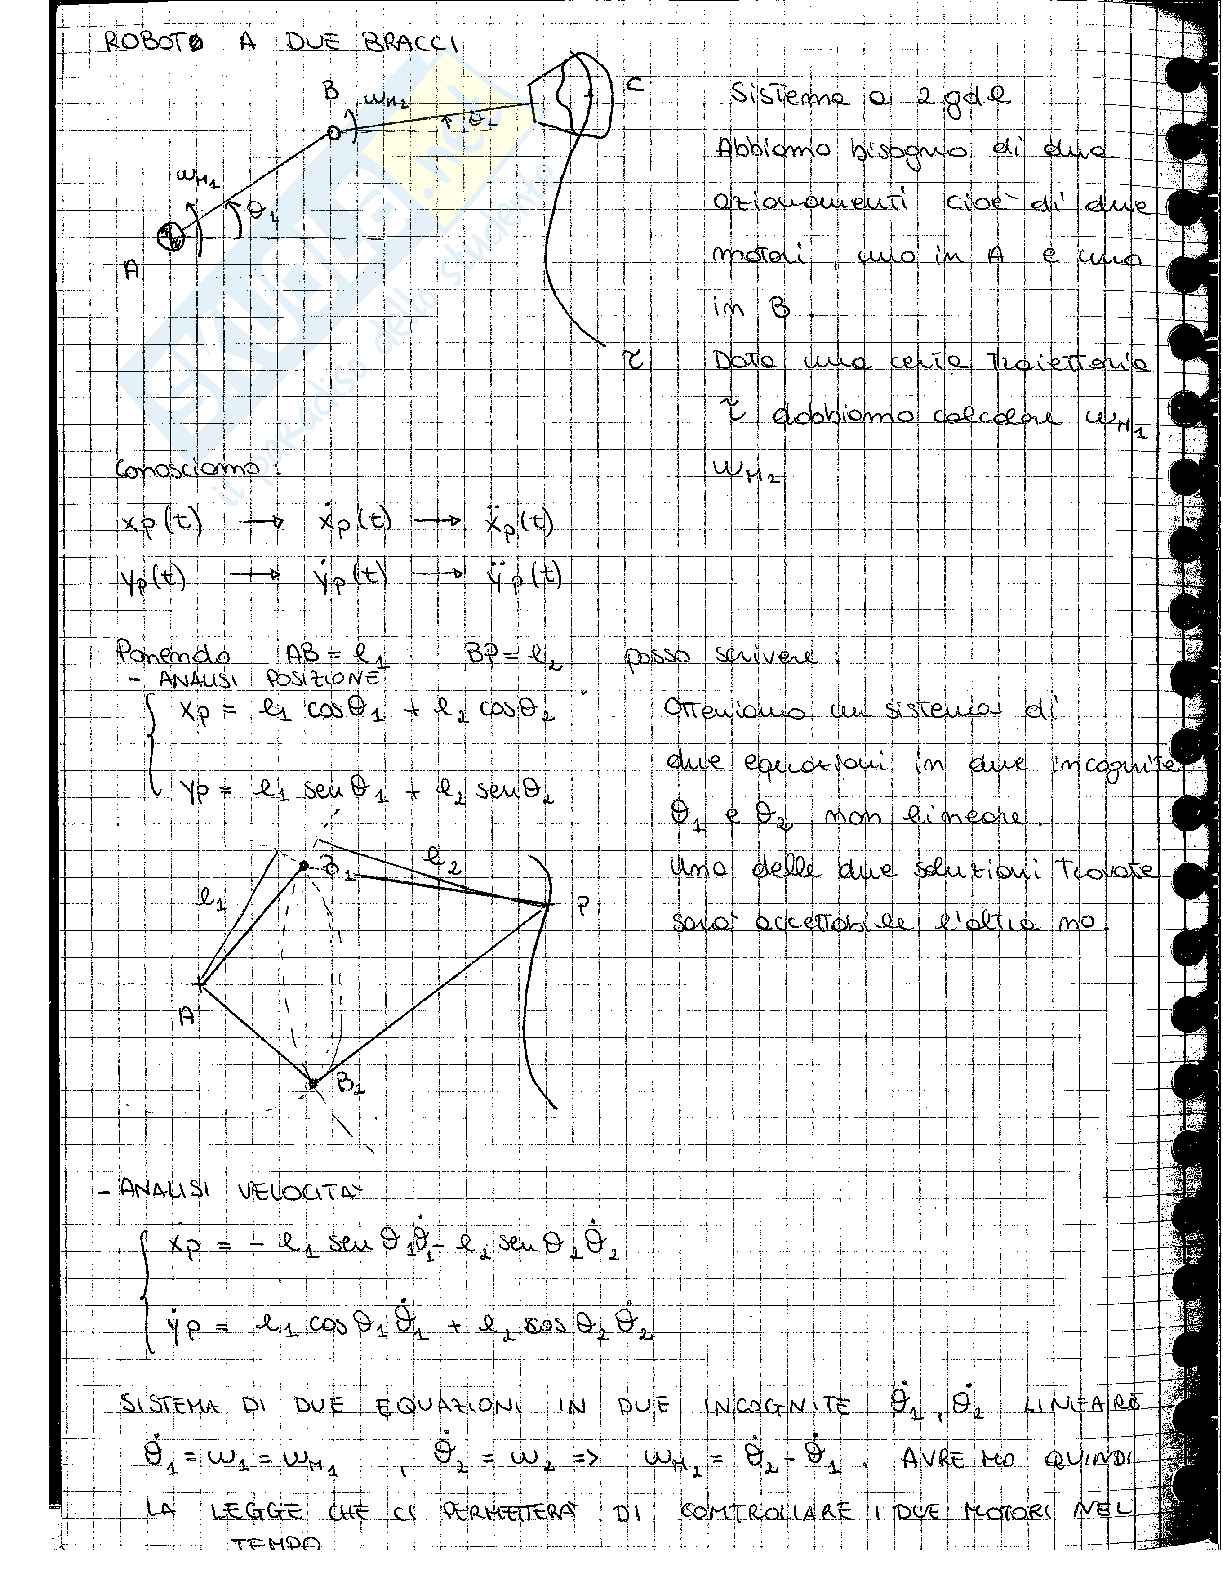 ROBOT A DUE BRACCI
B
ωM2
θ2
C
ωM1
θ1
A
τ
Sistema a 2 gdl
Abbiamo bisogno di due
azionamenti cioè di due
motori, uno in A e uno
in B.
Data una certa traiettoria
τ dobbiamo calcolare ωM1
ωM2
Conosciamo:
xp(t) → ẋp(t) → ẍp(t)
yp(t) → ẏp(t) → ÿp(t)
Ponendo AB = l1 BP = l2 posso scrivere:
- ANALISI POSIZIONE
xp = l1 cosθ1 + l2 cosθ2
yp = l1 senθ1 + l2 senθ2
Otteniamo un sistema di
due equazioni in due incognite
θ1 e θ2 non lineare.
Una delle due soluzioni trovate
sarà accettabile l'altra no.
l1
B1
l2
P
A
B2
- ANALISI VELOCITÀ
ẋp = - l1 sen θ1 θ̇1 - l2 sen θ2 θ̇2
ẏp = l1 cos θ1 θ̇1 + l2 cos θ2 θ̇2
SISTEMA DI DUE EQUAZIONI IN DUE INCOGNITE θ̇1, θ̇2 LINEARE
θ̇1 = ω1 = ωM1 , θ̇2 = ω2 => ωM2 = θ̇2 - θ̇1. AVREMO QUINDI
LA LEGGE CHE CI PERMETTERÀ DI CONTROLLARE I DUE MOTORI NEL
TEMPO